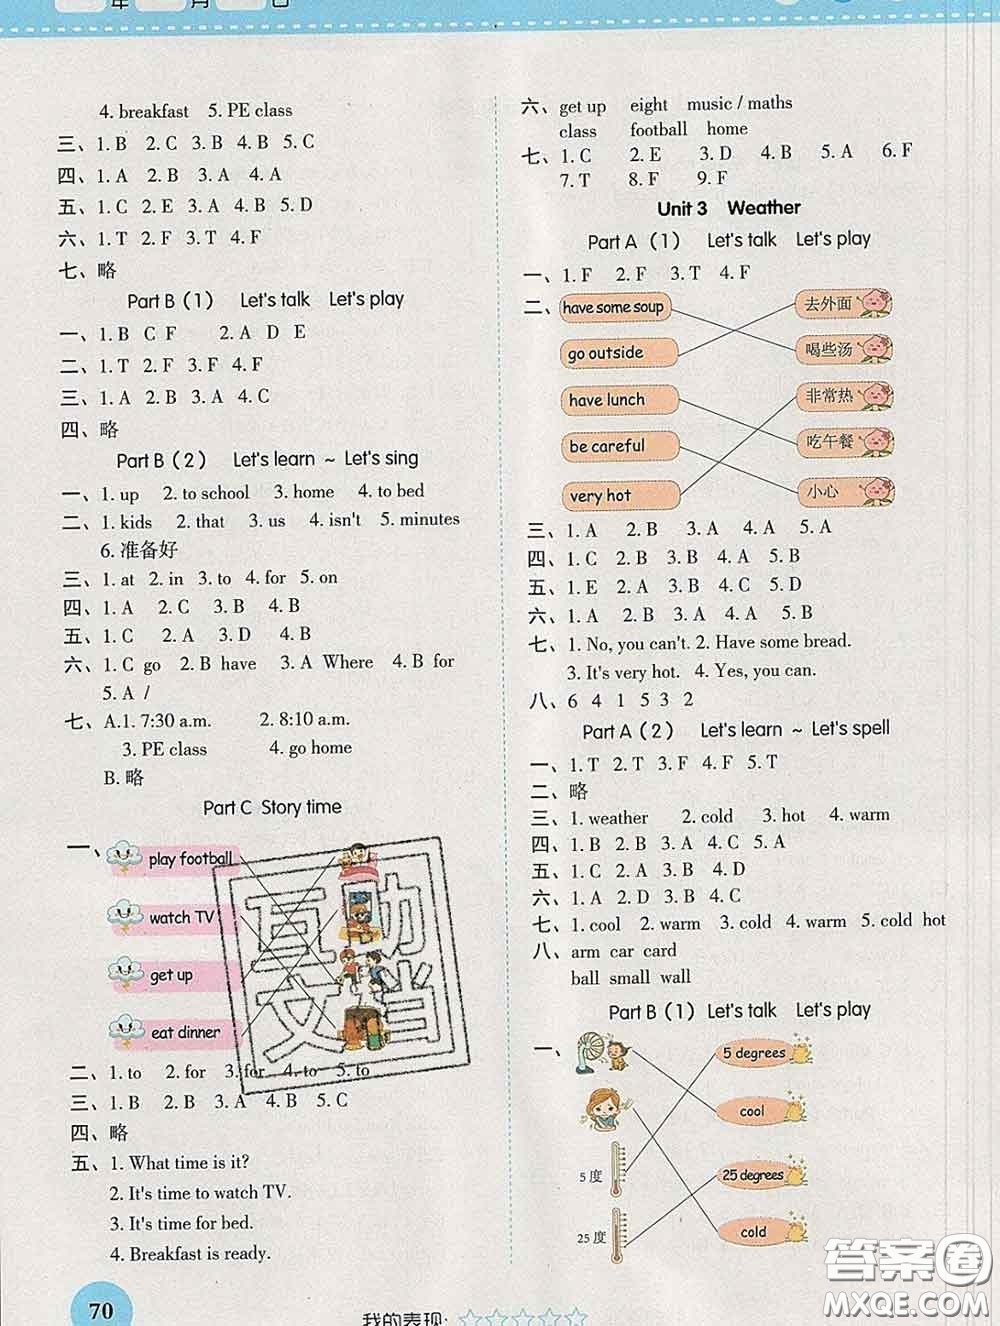 年 月 日
4. breakfast 5. PE class
三、1. B 2. C 3. B 4. B 5. C
四、1. A 2. B 3. A 4. A
五、1. C 2. E 3. A 4. B 5. D
六、1. T 2. F 3. T 4. F
七、略
Part B (1) Let's talk Let's play
一、1. B C F 2. A D E
二、1. T 2. F 3. F 4. F
三、1. A 2. B 3. A 4. C
四、略
Part B (2) Let's learn ~ Let's sing
一、1. up 2. to school 3. home 4. to bed
二、1. kids 2. that 3. us 4. isn't 5. minutes
6. 准备好
三、1. at 2. in 3. to 4. for 5. on
四、1. A 2. C 3. B 4. B
五、1. C 2. A 3. D 4. B
六、1. C go 2. B have 3. A Where 4. B for
5. A /
七、A.1. 7:30 a.m. 2. 8:10 a.m.
3. PE class 4. go home
B. 略
Part C Story time
一、
play football
watch TV
get up
eat dinner
二、1. to 2. for 3. for 4. to 5. to
三、1. B 2. B 3. A 4. B 5. C
四、略
五、1. What time is it?
2. It's time to watch TV.
3. It's time for bed.
4. Breakfast is ready.
70
六、get up eight music / maths
class football home
七、1. C 2. E 3. D 4. B 5. A 6. F
7. T 8. F 9. F
Unit 3 Weather
Part A (1) Let's talk Let's play
一、1. F 2. F 3. T 4. F
二、 have some soup 去外面
go outside 喝些汤
have lunch 非常热
be careful 吃午餐
very hot 小心
三、1. A 2. B 3. A 4. A 5. A
四、1. C 2. B 3. A 4. A 5. B
五、1. E 2. A 3. B 4. C 5. D
六、1. A 2. B 3. A 4. A 5. B
七、1. No, you can't. 2. Have some bread.
3. It's very hot. 4. Yes, you can.
八、6 4 1 5 3 2
Part A (2) Let's learn ~ Let's spell
一、1. T 2. T 3. F 4. F 5. T
二、略
三、1. weather 2. cold 3. hot 4. warm
四、1. B 2. B 3. A 4. C 5. A
五、1. C 2. A 3. B 4. D
六、1. A 2. D 3. B 4. C
七、1. cool 2. warm 3. cold 4. warm 5. cold hot
八、arm car card
ball small wall
Part B (1) Let's talk Let's play
一、
5 degrees
cool
5 度 25 degrees
25 度 cold
我的表现:
互助
文档
答案圈
MXQE.COM